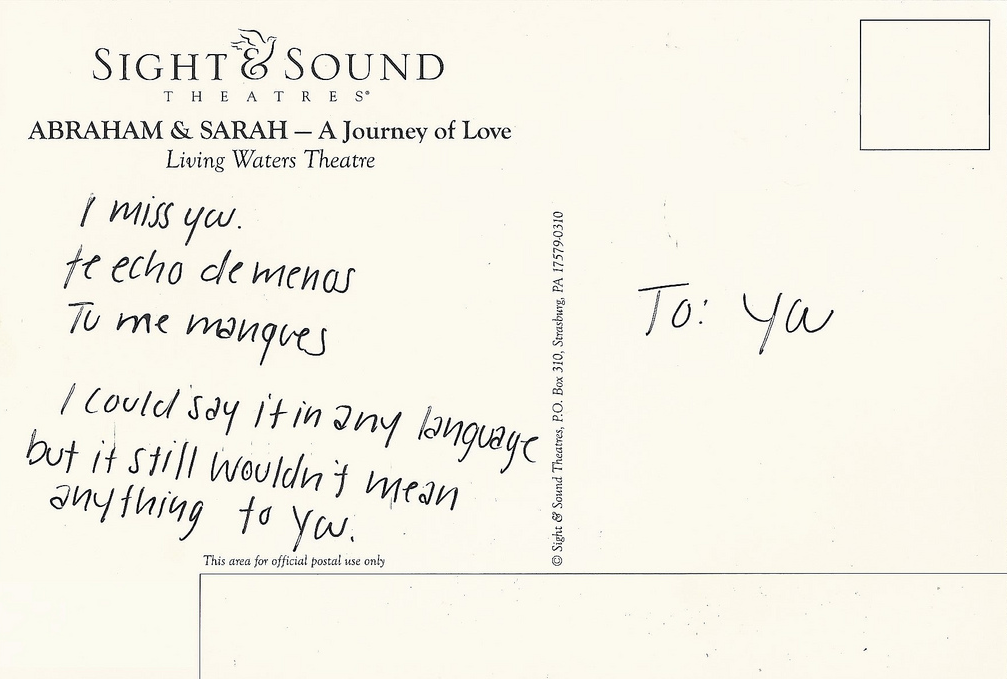 SIGHT & SOUND
THEATRES®
ABRAHAM & SARAH – A Journey of Love
Living Waters Theatre
I miss you.
te echo de menos
Tu me manques
I could say it in any language
but it still wouldn't mean
anything to you.
This area for official postal use only
© Sight & Sound Theatres, P.O. Box 310, Strasburg, PA 17579-0310
To: You